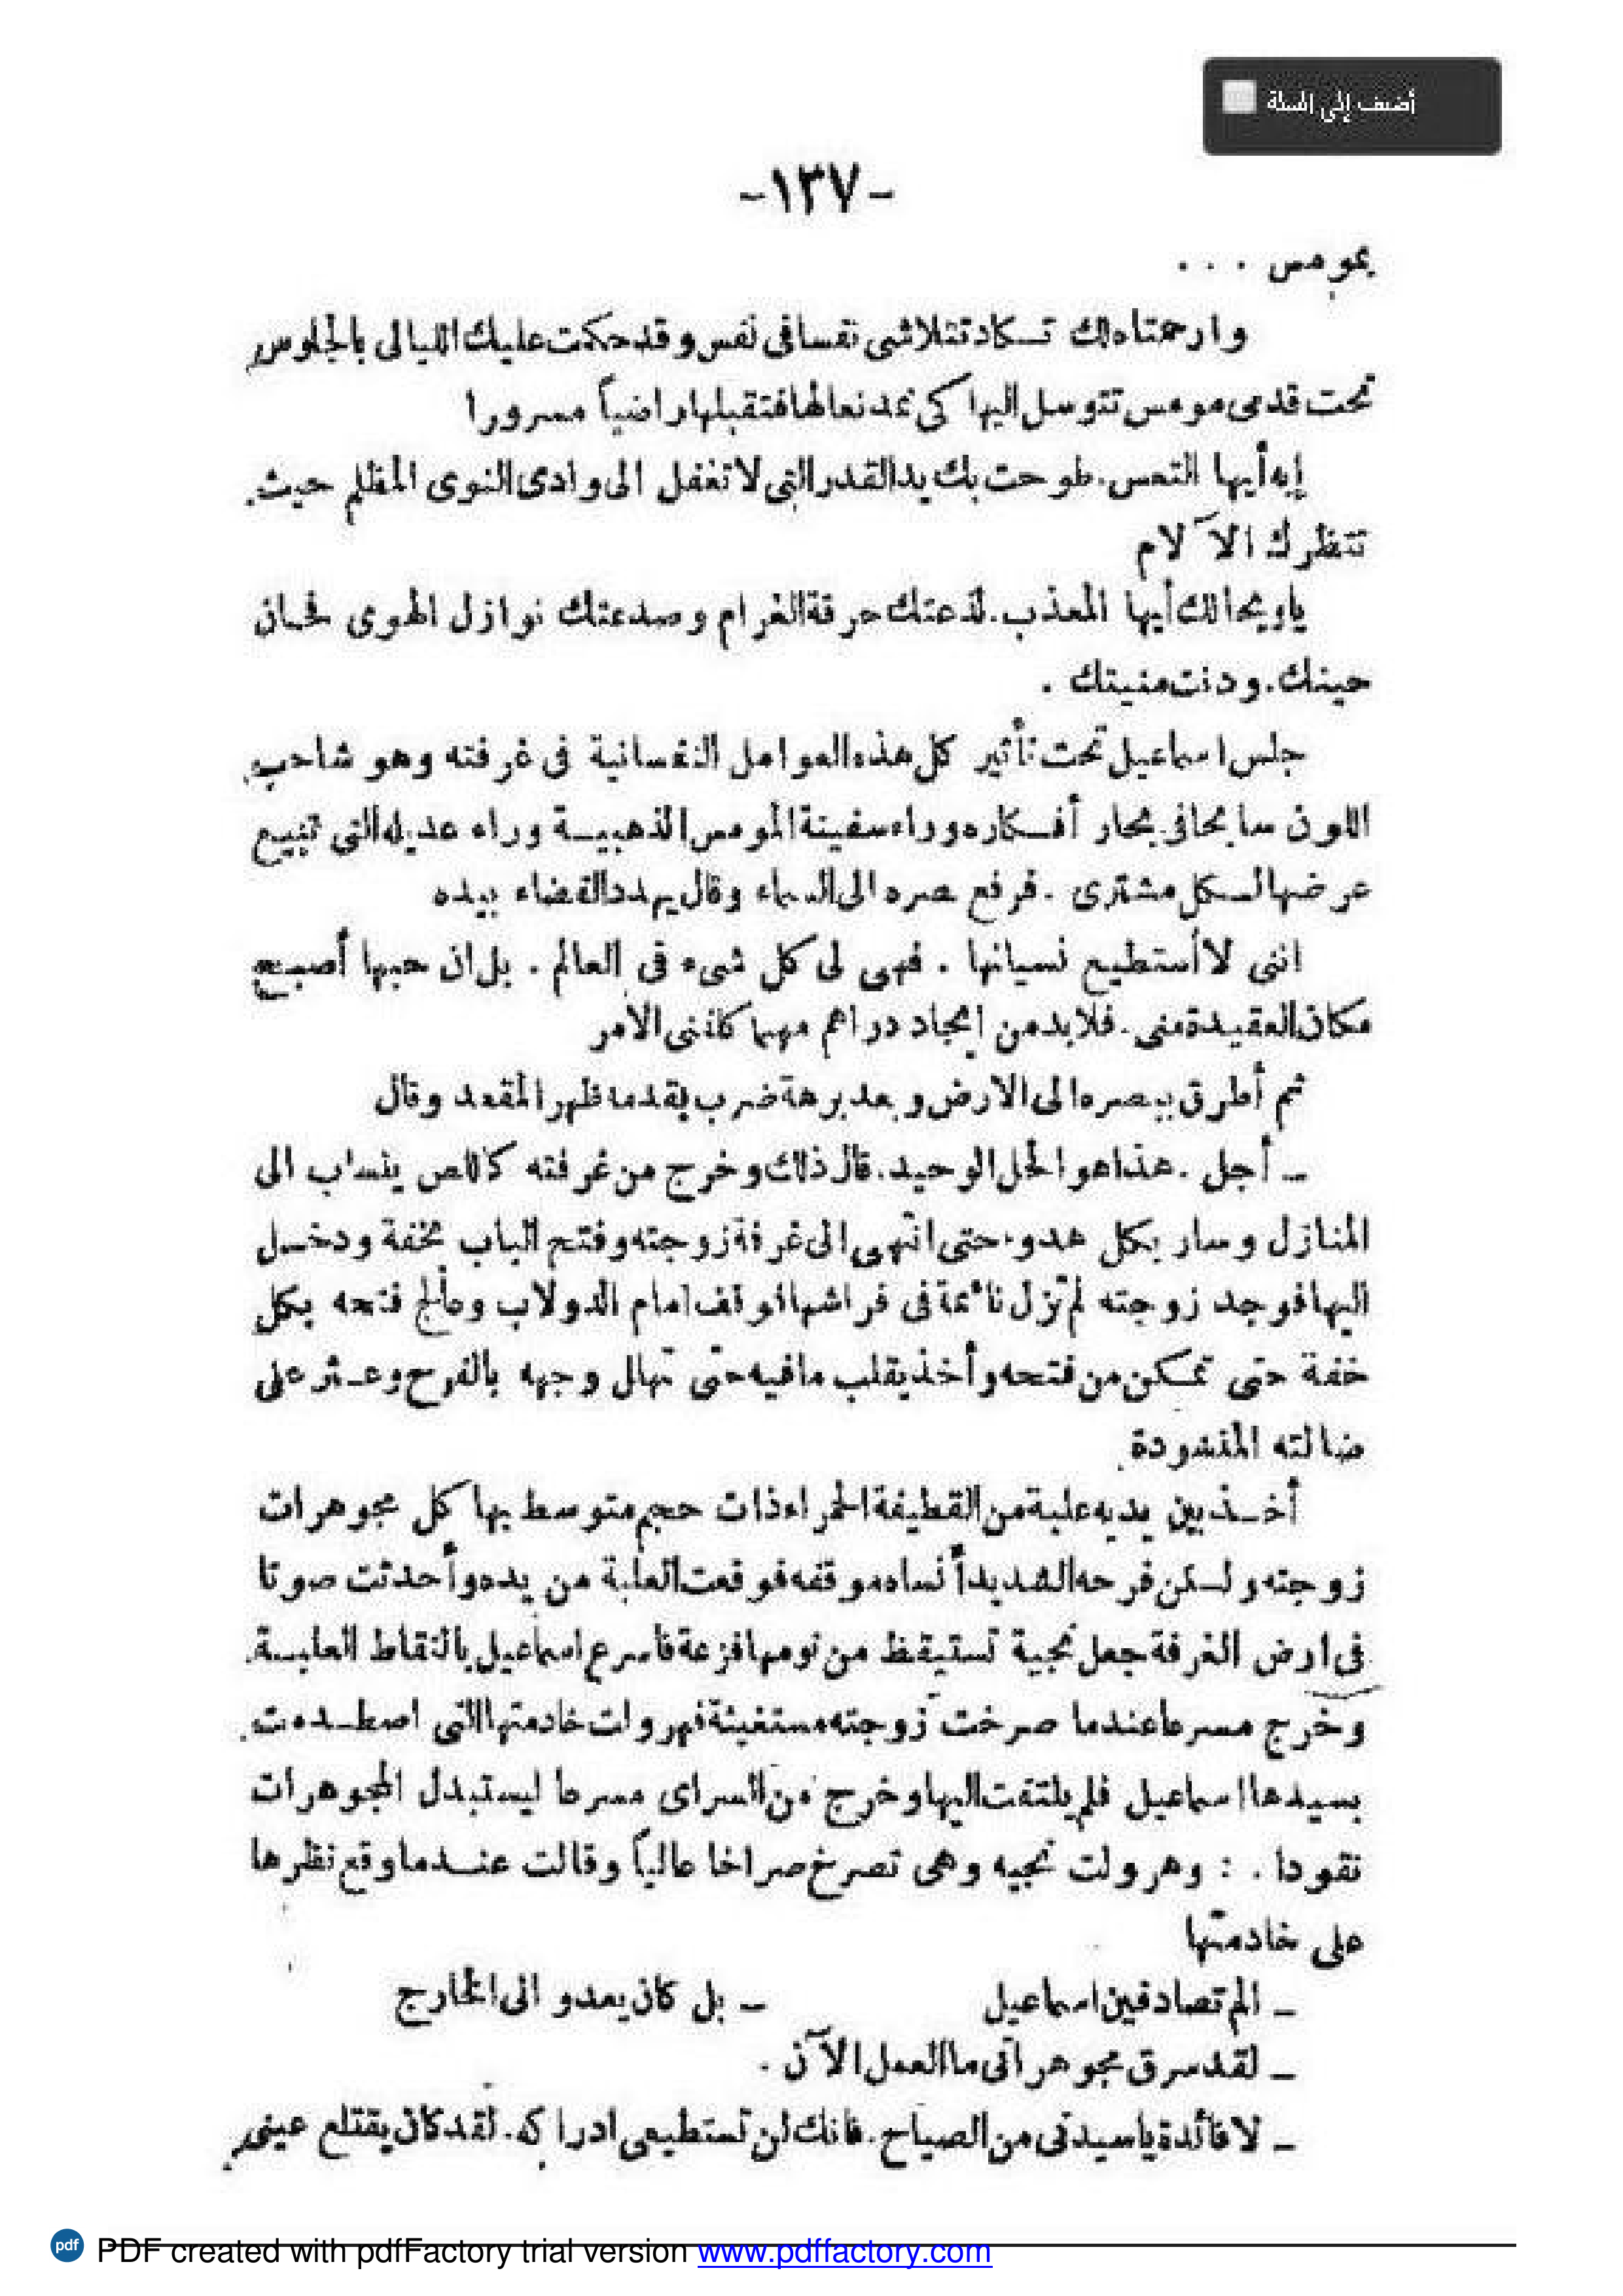 أضف إلى السلة
-١٣٧-
بمومس . . .
وارحمتاه لك تـكاد تتلاشى نفسا فى نفس وقد حكمت عليك الليالى بالجلوس
تحت قدمى مومس تتوسل اليها كى تمد نعالها فتقبلها راضياً مسرورا
إيه أيها التعس. طوحت بك يد القدر التى لا تغفل الى وادى النوى المظلم حيث
تنتظرك الآلام
ياويحا لك أيها المعذب. لذعتك حرقة الغرام وصدعتك نوازل الهوى فحان
حينك. ودنت منيتك .
جلس اسماعيل تحت تأثير كل هذه العوامل النفسانية فى غرفته وهو شاحب
اللون سابحا فى بحار أفـكاره وراء سفينة المومس الذهبيـة وراء عديله التى تبيع
عرضها لـكل مشترى . فرفع بصره الى السماء وقال يهدد القضاء بيده
اننى لا أستطيع نسيانها . فهى لى كل شىء فى العالم . بل ان حبها أصبح
مكان العقيدة منى. فلا بد من ايجاد دراهم مهما كلفنى الأمر
ثم أطرق ببصره الى الارض وبعد برهة ضرب بقدمه ظهر المقعد وقال
ـ أجل . هذا هو الحل الوحيد. قال ذلك وخرج من غرفته كاللص ينساب الى
المنازل وسار بكل هدوء حتى انتهى الى غرفة زوجته وفتح الباب بخفة ودخـل
اليها فوجد زوجته لم تزل نائمة فى فراشها فوقف امام الدولاب وعالج فتحه بكل
خفة حتى تمـكن من فتحه وأخذ يقلب مافيه حتى تهلل وجهه بالفرح وعـثر على
ضالته المنشودة
أخـذ بين يديه علبة من القطيفة الحمراء ذات حجم متوسط بها كل مجوهرات
زوجته ولـكن فرحه الشديد أنساه موقفه فوقعت العلبة من يده وأحدثت صوتا
فى ارض الغرفة جعل نجية تستيقظ من نومها فزعة فأسرع اسماعيل بالتقاط العلبـة
وخرج مسرعا عندما صرخت زوجته مستغيثة فهرولت خادمتها التى اصطـدمت
بسيدها اسماعيل فلم يلتفت اليها وخرج من السراى مسرعا ليستبدل المجوهرات
نقودا . : وهرولت نجيه وهى تصرخ صراخا عالياً وقالت عنـدما وقع نظرها
على خادمتها
ـ الم تصادفين اسماعيل ـ بل كان يعدو الى الخارج
ـ لقد سرق مجوهراتى ما العمل الآن .
ـ لا فائدة ياسيدتى من الصياح. فانك لن تستطيعى ادراكه. لقد كان يقتلع عينى
PDF created with pdfFactory trial version www.pdffactory.com